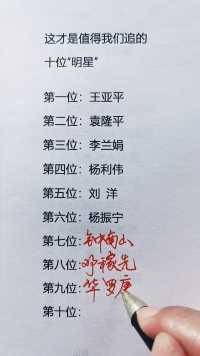 这才是值得我们追的
十位“明星”
第一位：王亚平
第二位：袁隆平
第三位：李兰娟
第四位：杨利伟
第五位：刘 洋
第六位：杨振宁
第七位：钟南山
第八位：邓稼先
第九位：华罗庚
第十位：